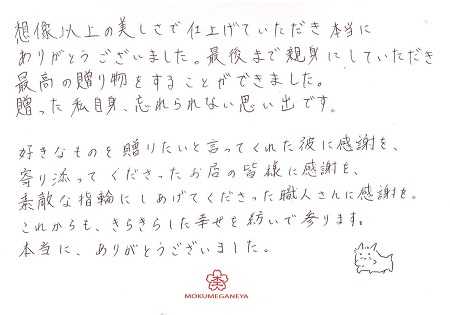 想像以上の美しさで仕上げていただき本当に
ありがとうございました。最後まで親身にしていただき
最高の贈り物をすることができました。
贈った私自身、忘れられない思い出です。
好きなものを贈りたいと言ってくれた彼に感謝を、
寄り添ってくださったお店の皆様に感謝を、
素敵な指輪にしあげてくださった職人さんに感謝を。
これからも、きらきらした幸せを紡いで参ります。
本当に、ありがとうございました。
MOKUMEGANEYA